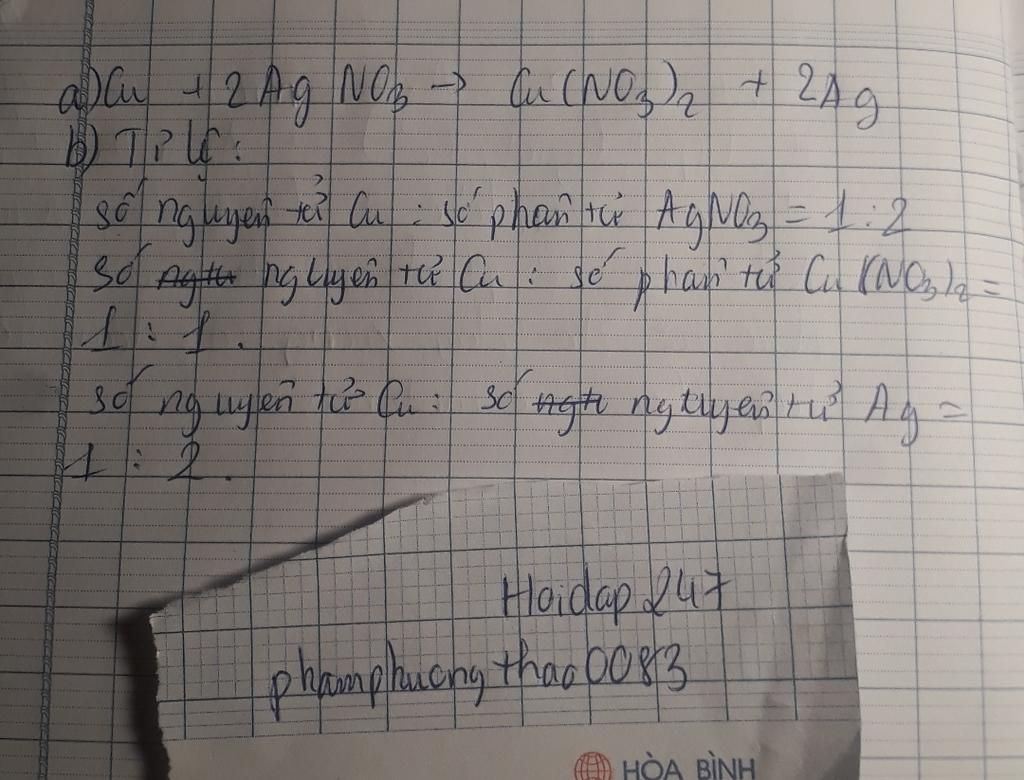 a) Cu + 2AgNO3 → Cu(NO3)2 + 2Ag
b) TPƯ:
số nguyên tử Cu : số phân tử AgNO3 = 1 : 2
số nguyên tử Cu : số phân tử Cu(NO3)2 =
1 : 1.
số nguyên tử Cu : số nguyên tử Ag =
1 : 2.
Hoidap 247
phamphuongthao0083
HÒA BÌNH